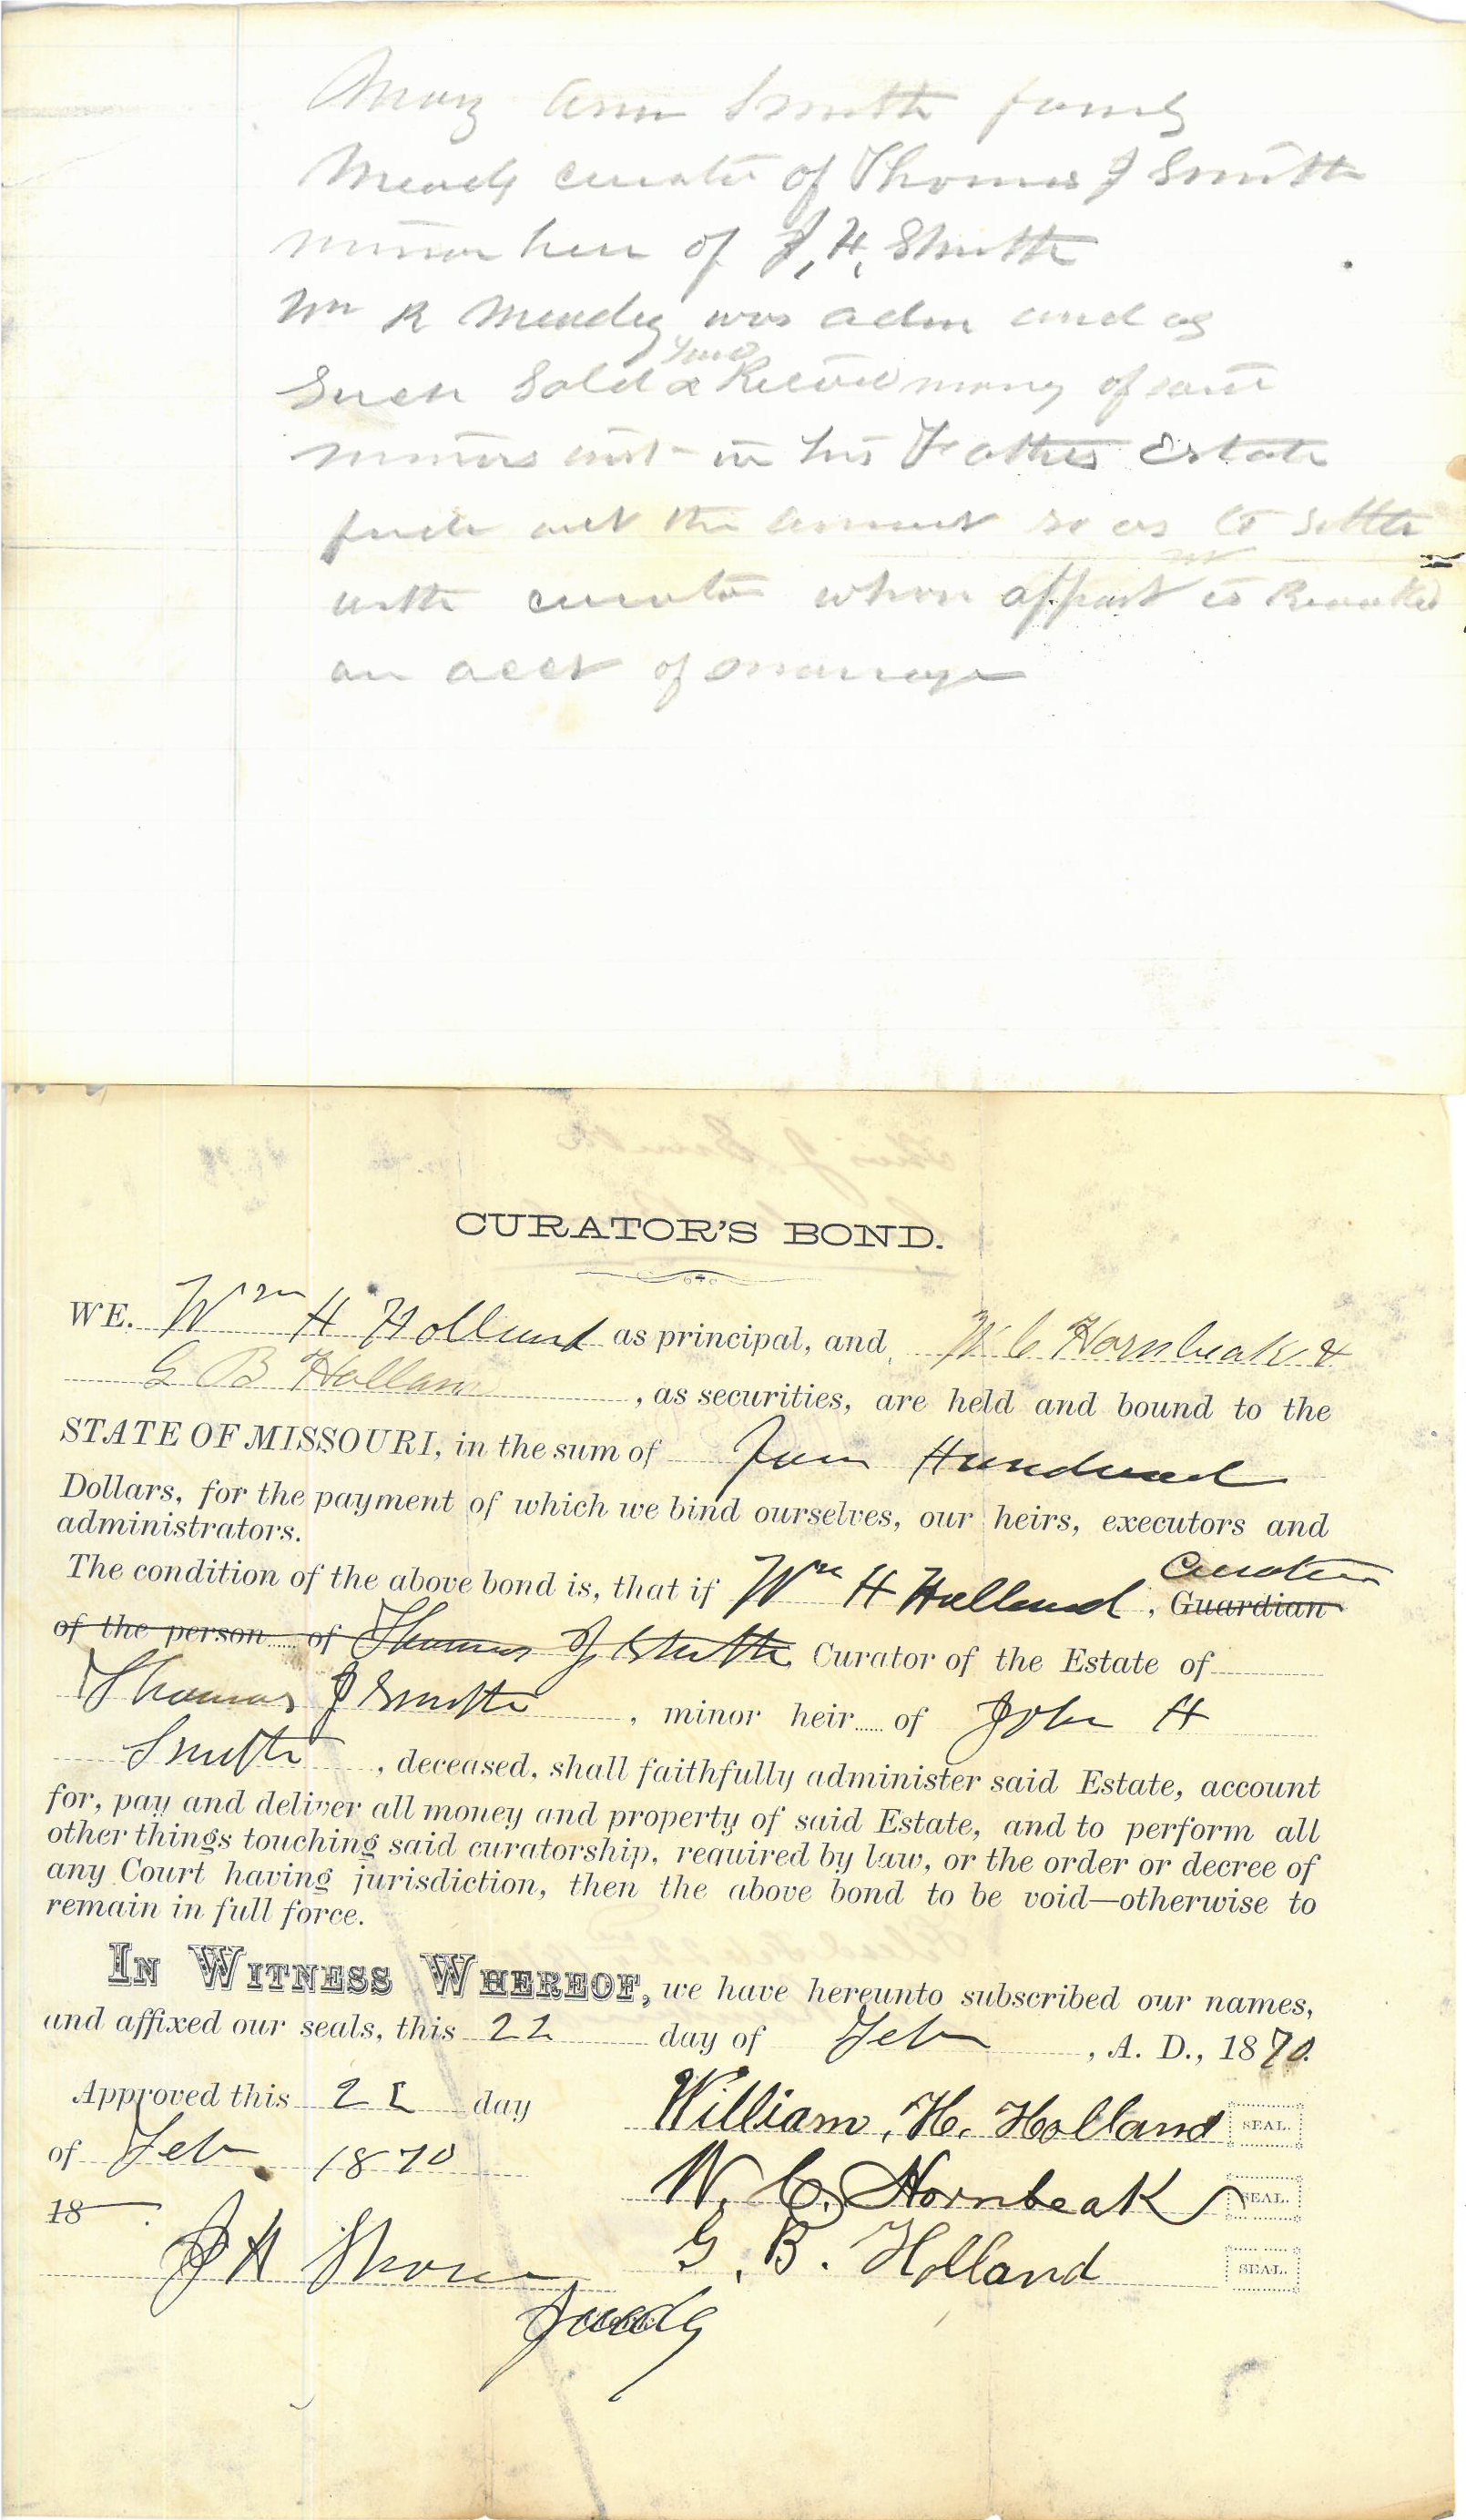 Mary Ann Smith formly
Meady curator of Thomas J Smith
minor heir of J. H. Smith
Wm R Meadey was adm and as
Such Sold & Received money of said
minors int in his Fathers Estate
out the amount so as to settle
with curator whose appmt is Revoked
on acct of marriage
CURATOR'S BOND.
WE. Wm H Holland as principal, and W C Hornbeak &
G B Holland, as securities, are held and bound to the
STATE OF MISSOURI, in the sum of Hundred
Dollars, for the payment of which we bind ourselves, our heirs, executors and
administrators.
Curator
The condition of the above bond is, that if Wm H Holland, Guardian
of the person of Thomas J Smith Curator of the Estate of
Thomas J Smith, minor heir of John H
Smith, deceased, shall faithfully administer said Estate, account
for, pay and deliver all money and property of said Estate, and to perform all
other things touching said curatorship, required by law, or the order or decree of
any Court having jurisdiction, then the above bond to be void—otherwise to
remain in full force.
IN WITNESS WHEREOF, we have hereunto subscribed our names,
and affixed our seals, this 22 day of Feb, A. D., 1870.
Approved this 22 day
of Feb 1870
18
William. H. Holland SEAL.
W. C. Hornbeak SEAL.
G. B. Holland SEAL.
J H
Judg